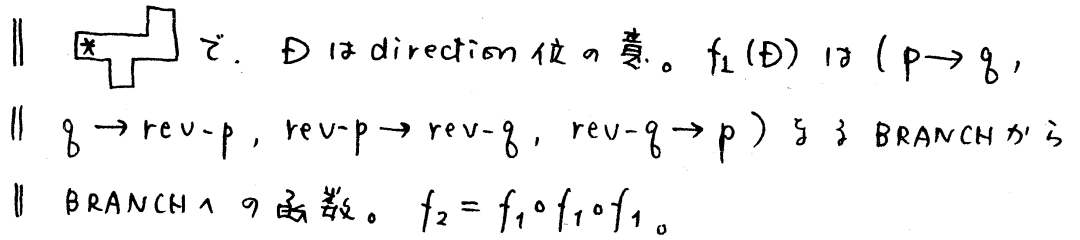 ‖ * で. Đ は direction 位の意。f₁(Đ) は (p→q,
‖ q→rev-p, rev-p→rev-q, rev-q→p) なる BRANCHから
‖ BRANCHへの函数。f₂ = f₁∘f₁∘f₁。